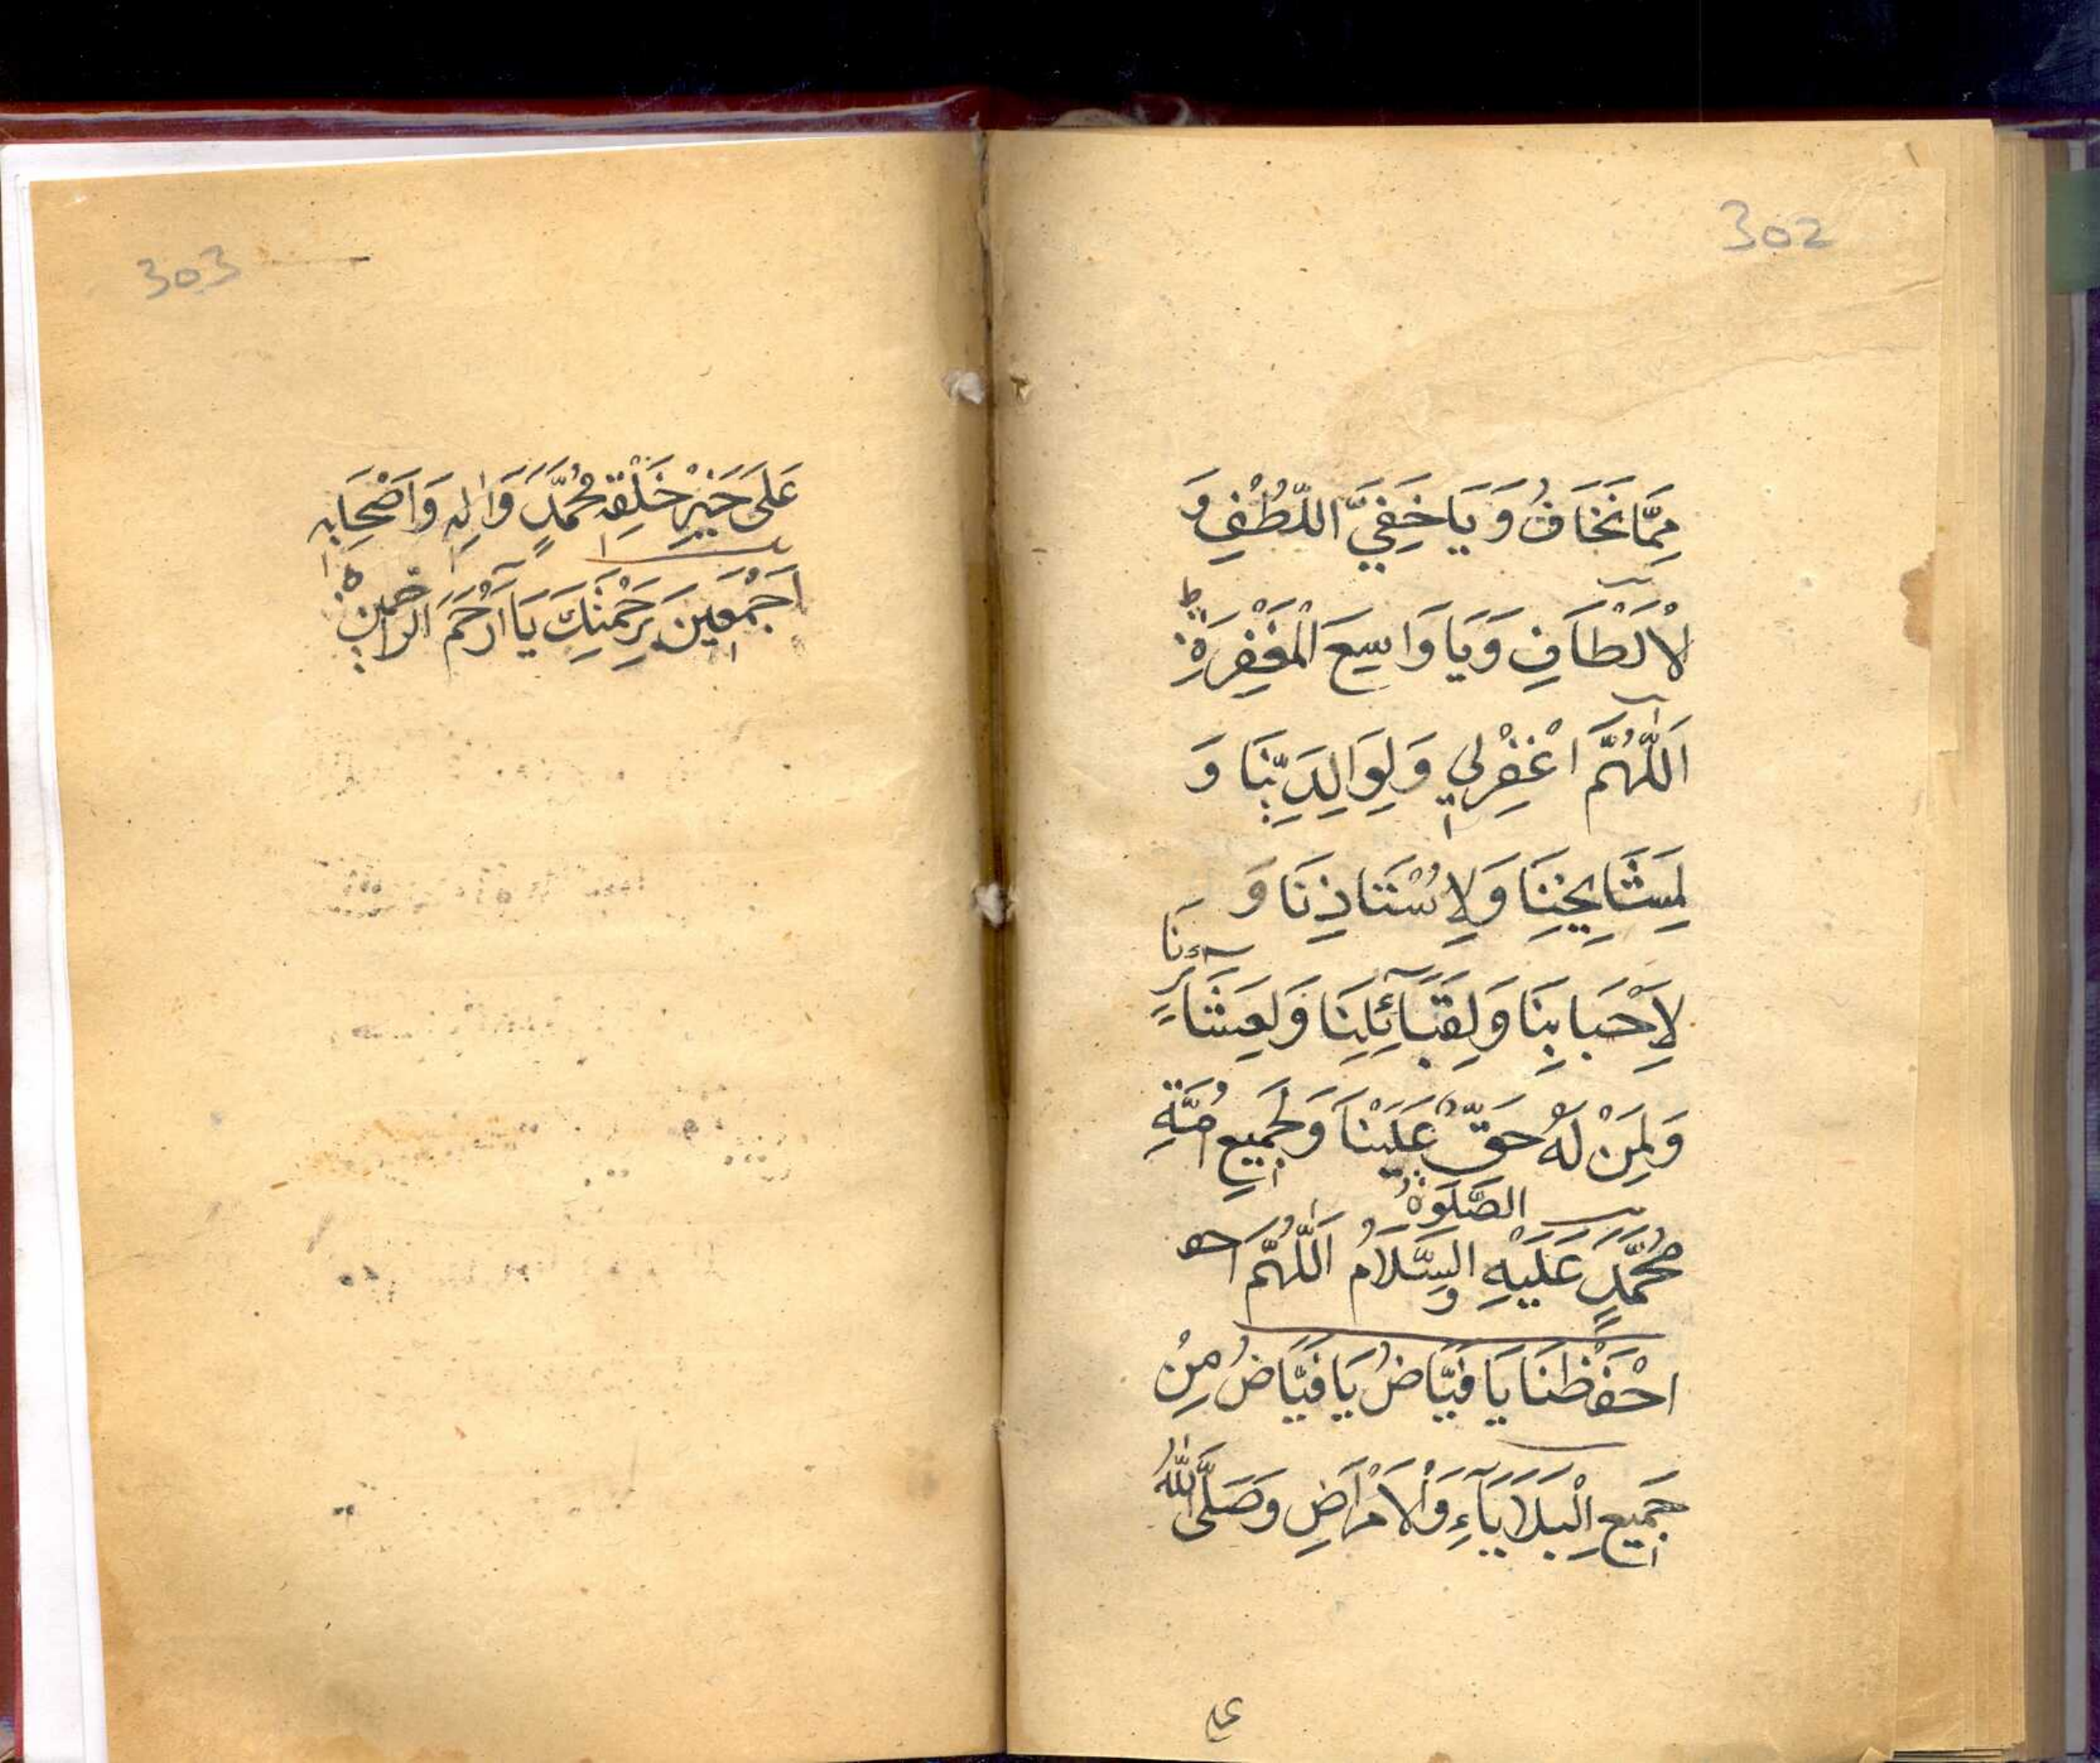 302
مِمَّا نَخَافُ وَ يَا خَفِيَّ اللُّطْفِ وَ
لْاَلْطَافِ وَ يَا وَاسِعَ الْمَغْفِرَةِ ط
اَللّٰهُمَّ اغْفِرْلِي وَ لِوَالِدَيْنَا وَ
لِمَشَايِخِنَا وَ لِاُسْتَاذِنَا وَ
لِاَحْبَابِنَا وَ لِقَبَآئِلِنَا وَ لِعَشَآئِرِنَا
وَ لِمَنْ لَهُ حَقٌّ عَلَيْنَا وَ لِجَمِيعِ اُمَّةِ
مُحَمَّدٍ عَلَيْهِ الصَّلَوٰةُ وَ السَّلَامُ اَللّٰهُمَّ احـ
احْفَظْنَا يَا فَيَّاضُ يَا فَيَّاضُ مِنْ
جَمِيعِ الْبَلَايَآءِ وَ الْاَمْرَاضِ وَ صَلَّى اللّٰهُ
عل
303
عَلَى خَيْرِ خَلْقِهٖ مُحَمَّدٍ وَ اٰلِهٖ وَ اَصْحَابِهٖ
اَجْمَعِينَ بِرَحْمَتِكَ يَا اَرْحَمَ الرَّاحِمِينَ ه